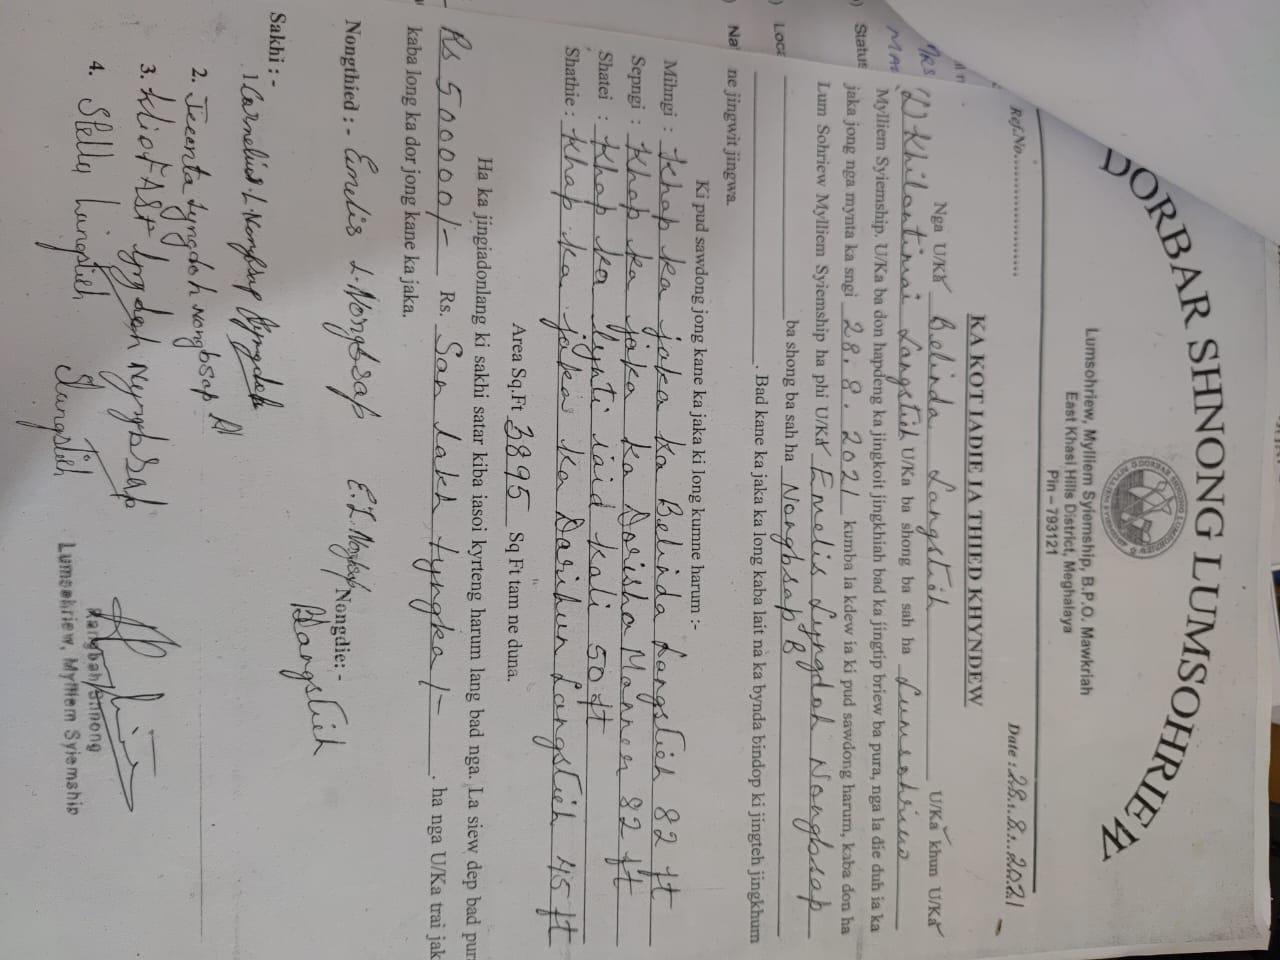 DORBAR SHNONG LUMSOHRIEW
Lumsohriew, Mylliem Syiemship, B.P.O. Mawkriah
East Khasi Hills District, Meghalaya
Pin – 793121
Ref.No.............................. Date : 28..8...2021
KA KOT IADIE IA THIED KHYNDEW
Nga U/Ka Belinda Langstieh U/Ka khun U/Ka
(L) Khilantimai Langstieh U/Ka ba shong ba sah ha Lumsohriew
Mylliem Syiemship. U/Ka ba don hapdeng ka jingkoit jingkhiah bad ka jingtip briew ba pura, nga la die duh ia ka
jaka jong nga mynta ka sngi 28. 8. 2021 kumba la kdew ia ki pud sawdong harum, kaba don ha
Lum Sohriew Mylliem Syiemship ha phi U/Ka Emelis Lyngdoh Nongbsap
ba shong ba sah ha Nongbsap B
. Bad kane ka jaka ka long kaba lait na ka bynda bindop ki jingteh jingkhum
ne jingwit jingwa.
Ki pud sawdong jong kane ka jaka ki long kumne harum :-
Mihngi : Khap ka jaka ka Belinda Langstieh 82 ft
Sepngi : Khap ka jaka ka Dorisha Manner 82 ft
Shatei : Khap ka lynti iaid kali 50 ft
Shathie : Khap ka jaka ka Darihun Langstieh 45 ft
Area Sq.Ft 3895 Sq Ft tam ne duna.
Ha ka jingiadonlang ki sakhi satar kiba iasoi kyrteng harum lang bad nga. La siew dep bad pur
Rs 500000/- Rs. San lakh tyngka/- . ha nga U/Ka trai jak
kaba long ka dor jong kane ka jaka.
Nongthied : - Emelis L. Nongbsap E.L. Nongbsap Nongdie: -
BLangstieh
Sakhi : -
1. Cornelius L Nongbsap
2. Jecenta Lyngdoh Nongbsap
3. Lyngdoh Nongbsap
4. Stella Langstieh SLangstieh
Rangbah Shnong
Lumsohriew, Mylliem Syiemship
Status
Loca
Na
MRS